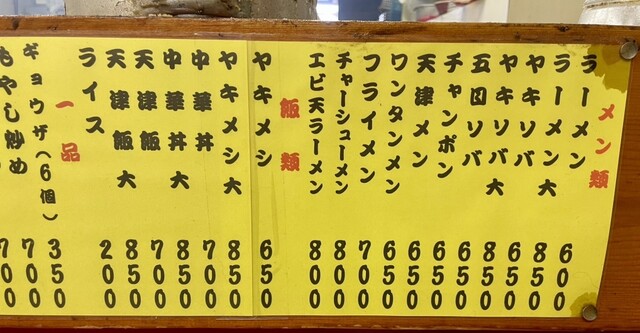 メン類
ラーメン 600
ラーメン大 850
ヤキソバ 650
ヤキソバ大 850
五目ソバ 650
チャンポン 650
天津メン 650
ワンタンメン 650
フライメン 700
チャーシューメン 800
エビ天ラーメン 800
飯類
ヤキメシ 650
ヤキメシ大 850
中華丼 700
中華丼大 850
天津飯 700
天津飯大 850
ライス 200
一品
ギョウザ(6個) 350
もやし炒め 700
700